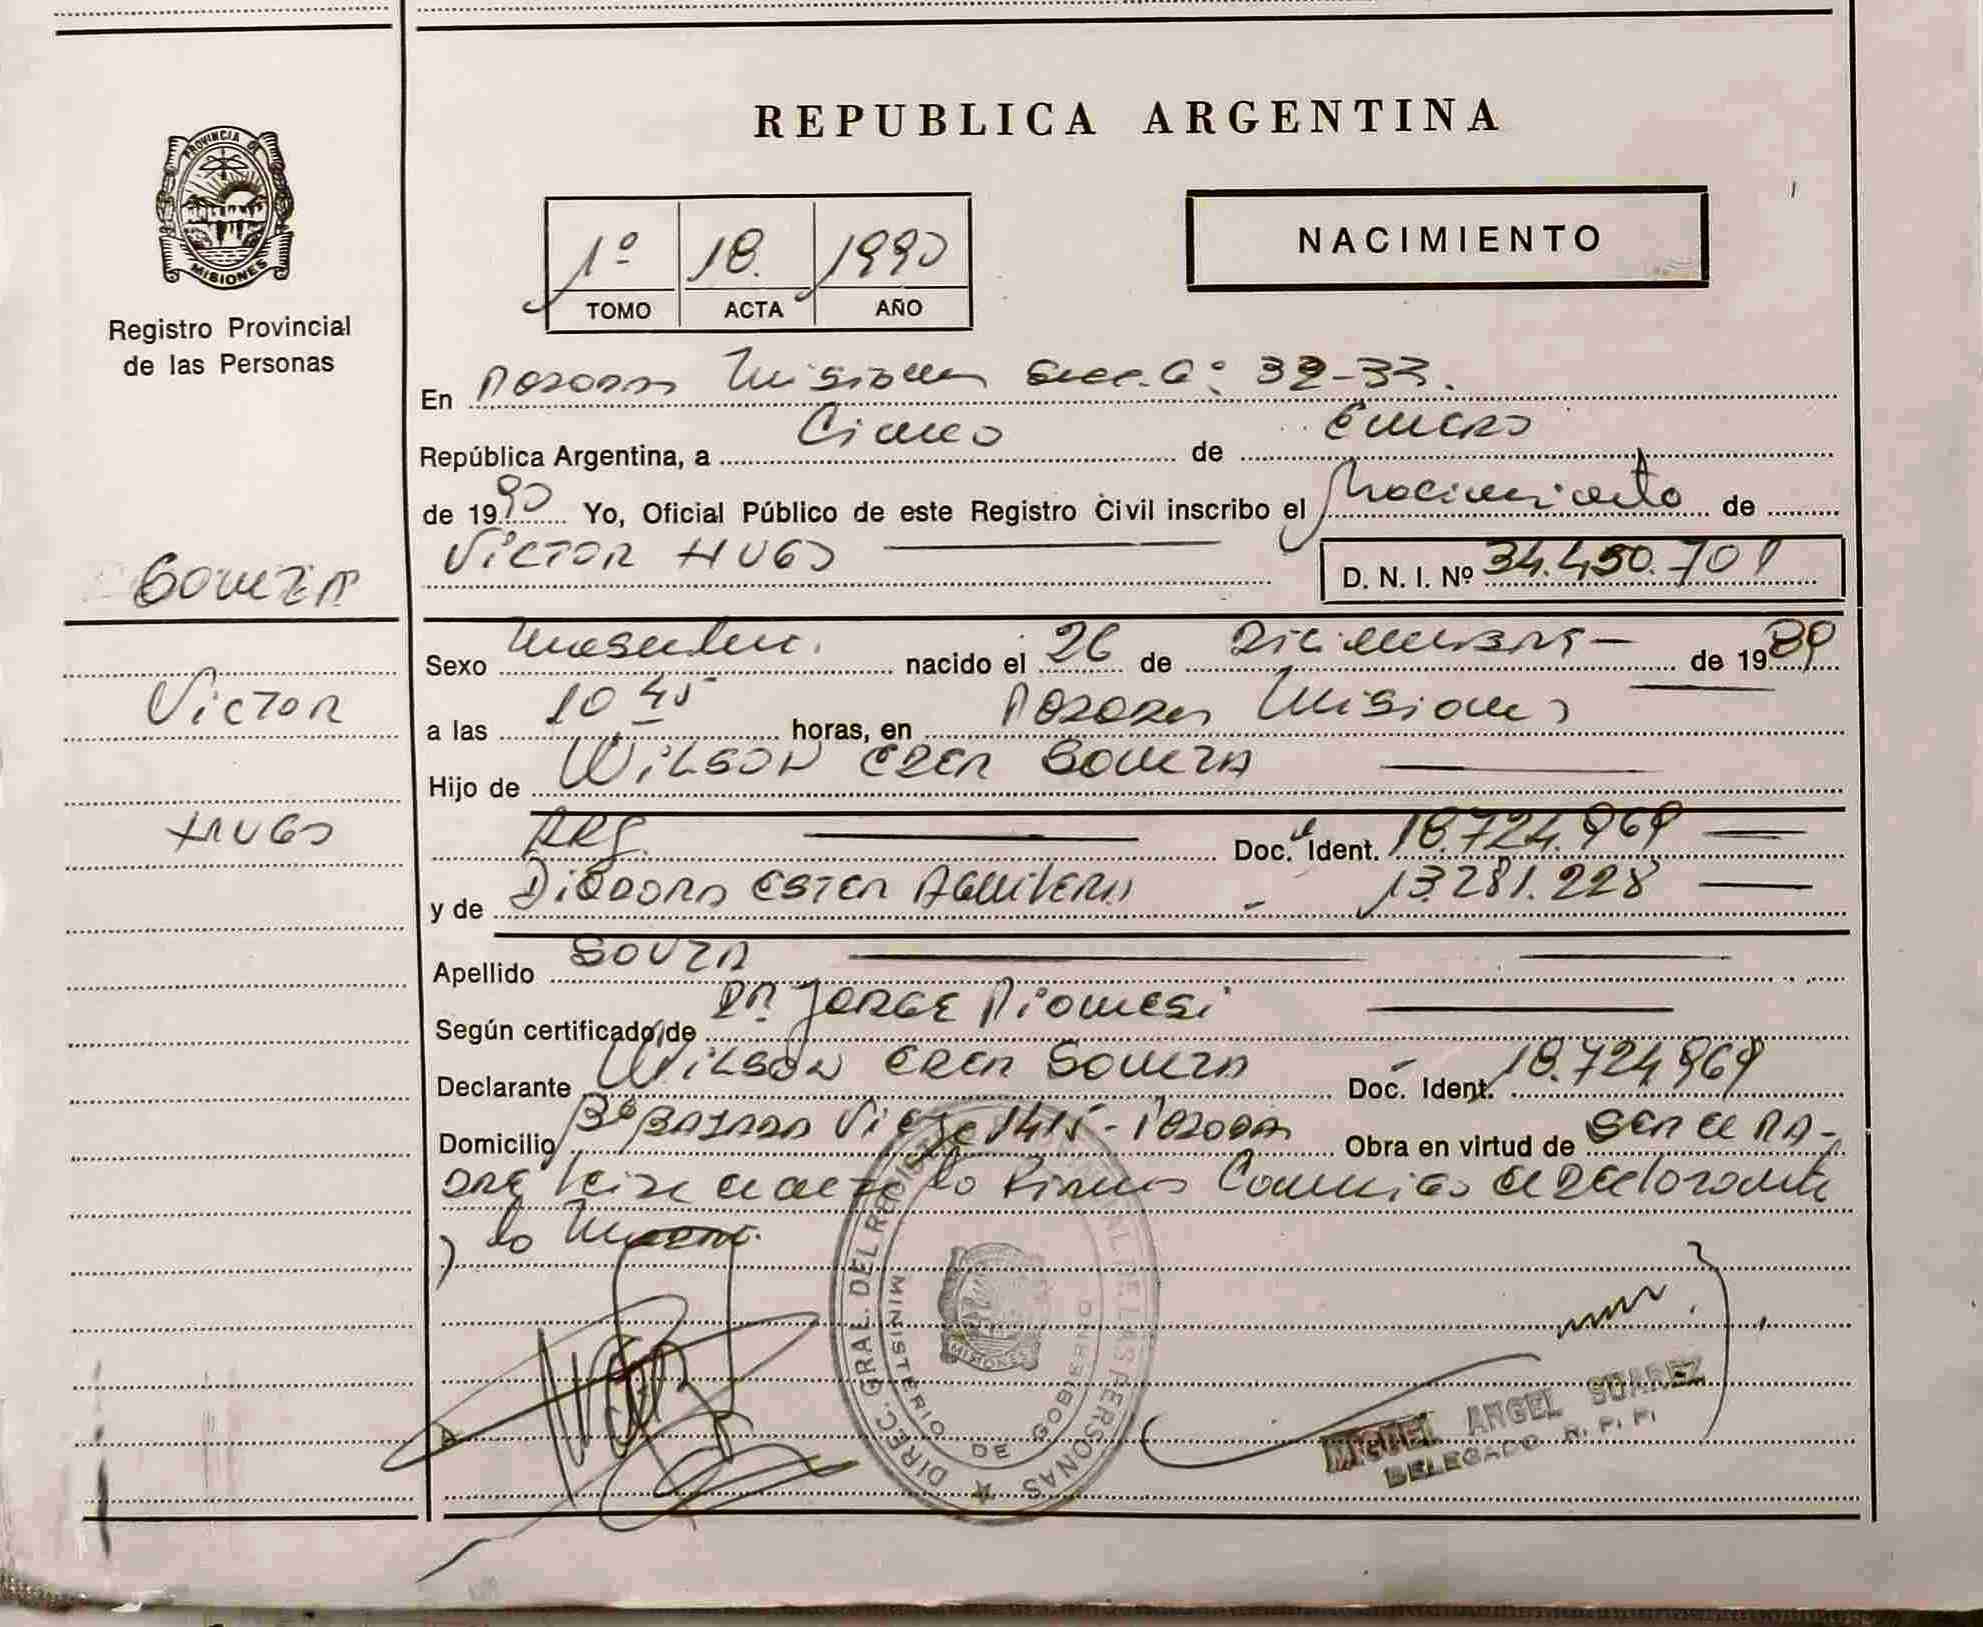 REPUBLICA ARGENTINA
PROVINCIA DE
MISIONES
Registro Provincial
de las Personas
1º 18. 1990
TOMO ACTA AÑO
NACIMIENTO
En Posadas Misiones Secc. 6º: 32-33.
República Argentina, a Cinco de Enero
de 1990 Yo, Oficial Público de este Registro Civil inscribo el Nacimiento de
VICTOR HUGO
D. N. I. Nº 34.450.701
SOUZA
VICTOR
HUGO
Sexo Masculino. nacido el 26 de Diciembre de 1989
a las 10 45 horas, en Posadas Misiones
Hijo de WILSON EDER SOUZA
ARG. Doc. Ident. 18.724.969
y de DIODORA ESTER AGUILERA - 13.281.228
Apellido SOUZA
Según certificado de DR. JORGE
Declarante WILSON EDER SOUZA - Doc. Ident. 18.724.969
Domicilio 1415 - Posadas Obra en virtud de
el declarante
y la Madre.
DIREC. GRAL. DEL REGISTRO PROVINCIAL DE LAS PERSONAS
MINISTERIO DE GOBIERNO
MISIONES
MIGUEL ANGEL SUAREZ
DELEGADO R. P. P.